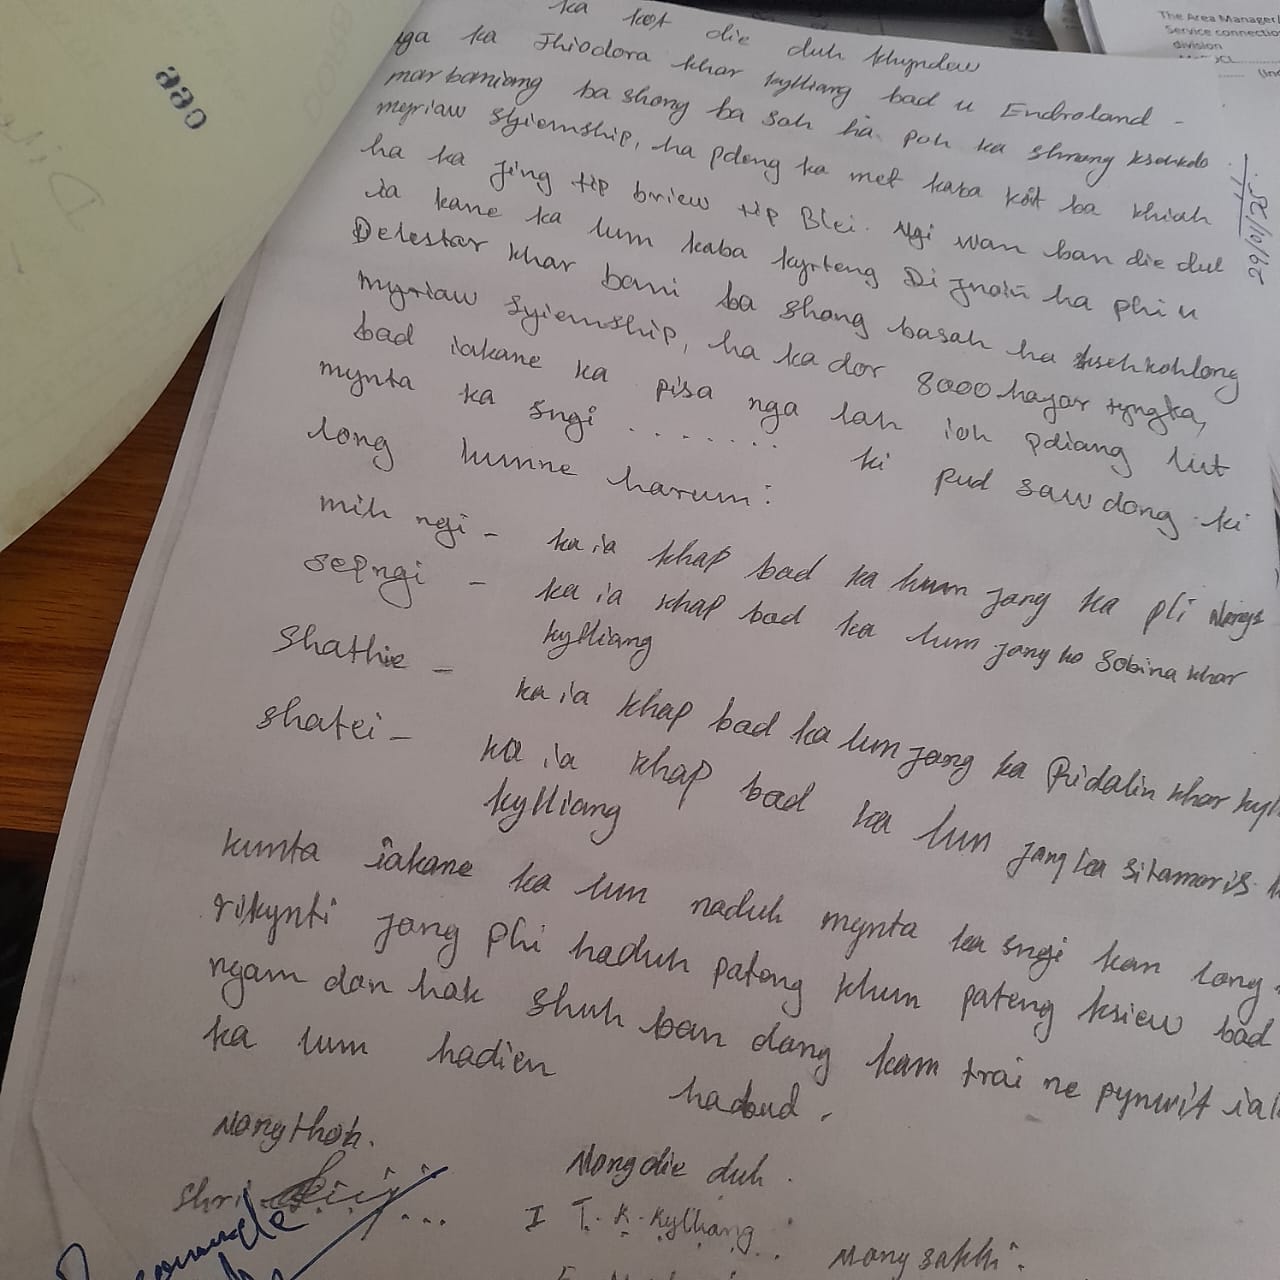 ka kot die duh khyndew
nga ka Thiodora khar kylliang bad u Endroland -
marbaniang ba shong ba sah ha poh ka shnong
myriaw Syiemship, ha pdeng ka met kaba kot ba khiah
ha ka Jing tip briew tip Blei. Ngi wan ban die duh
ia kane ka lum kaba kyrteng ha phi u
Delestar khar bani ba shong basah ha
myriaw Syiemship, ha ka dor 8000 hajar tyngka,
bad iakane ka pisa nga lah ioh pdiang lut
mynta ka sngi ........ ki pud sawdong ki
long kumne harum:
mih ngi - ka ia khap bad ka lum jong ka pli
sepngi - ka ia khap bad ka lum jong ka Sobina khar
kylliang
shathie - ka ia khap bad ka lum jong ka Ridalin khar
shatei - ka ia khap bad ka lum jong ka Sitamoris
kylliang
kumta iakane ka lum naduh mynta ka sngi kan long
rikynti jong phi haduh pateng khun pateng ksiew bad
ngam don hak shuh ban dang kam trai ne pynwit
ka lum hadien habud.
Nongthoh. Nongdie duh.
Shri
I T. K. Kylliang
Nongsakhi.
26/01/95
The Area Manager/
Service connectio
division